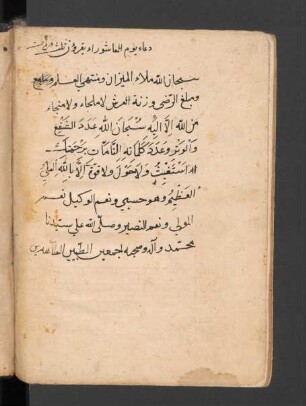 دعاء يوم العاشوراء يقرء
سبحان الله ملاء الميزان ومنتهى العلم ومبلغ
ومبلغ الرضى وزنة العرش لا ملجاء ولا منجاء
من الله الا اليه سبحان الله عدد الشفع
والوتر وعدد كلماته التامات برحمتك
استغيث ولا حول ولا قوة الا بالله العلي
العظيم وهو حسبي ونعم الوكيل نعم
المولى ونعم النصير وصلى الله على سيدنا
محمد وآله وصحبه اجمعين الطيبين الطاهرين